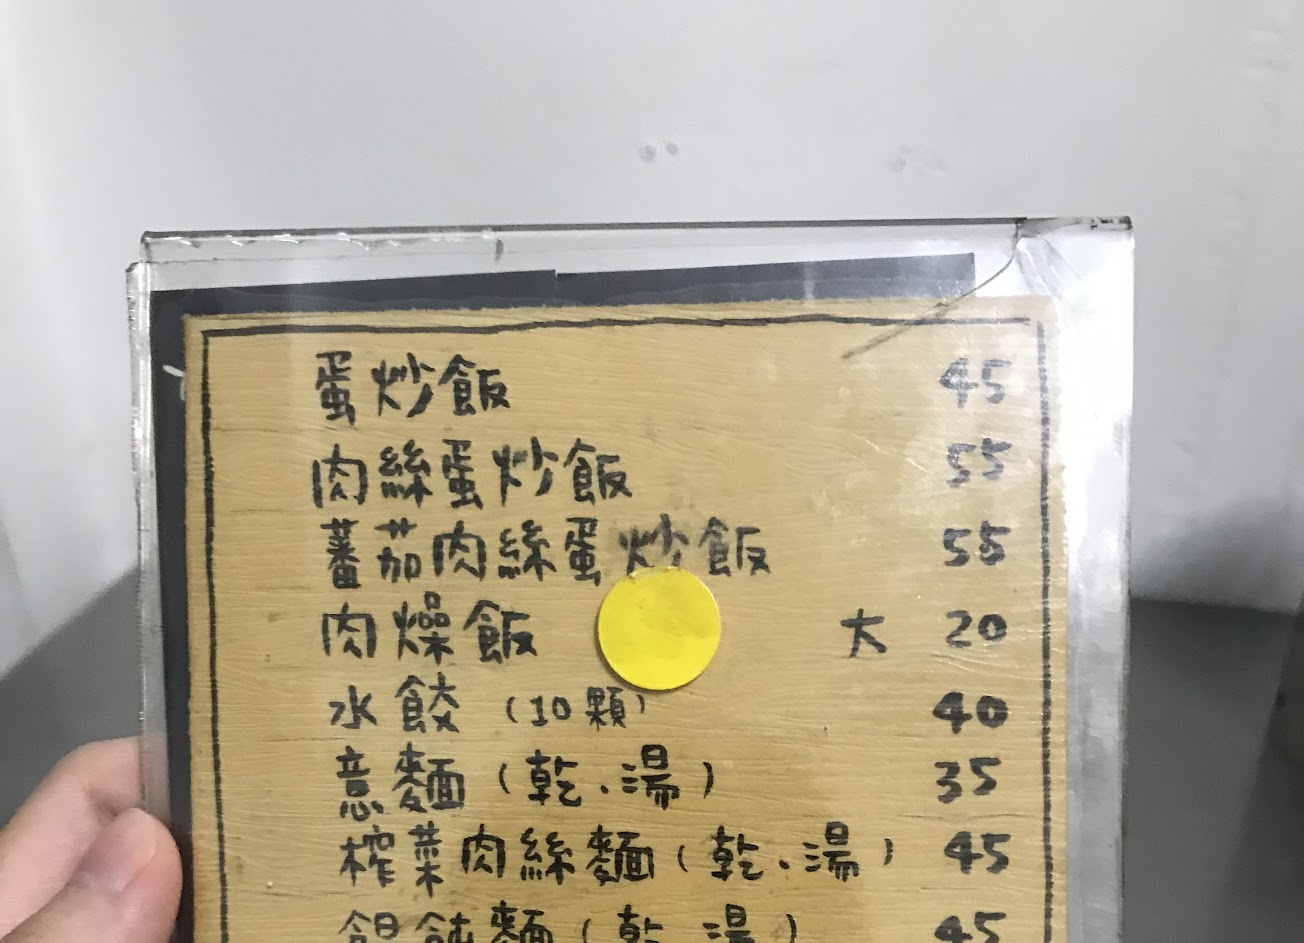 蛋炒飯 45
肉絲蛋炒飯 55
蕃茄肉絲蛋炒飯 55
肉燥飯 大 20
水餃 (10顆) 40
意麵 (乾、湯) 35
榨菜肉絲麵 (乾、湯) 45
餛飩麵 (乾、湯) 45